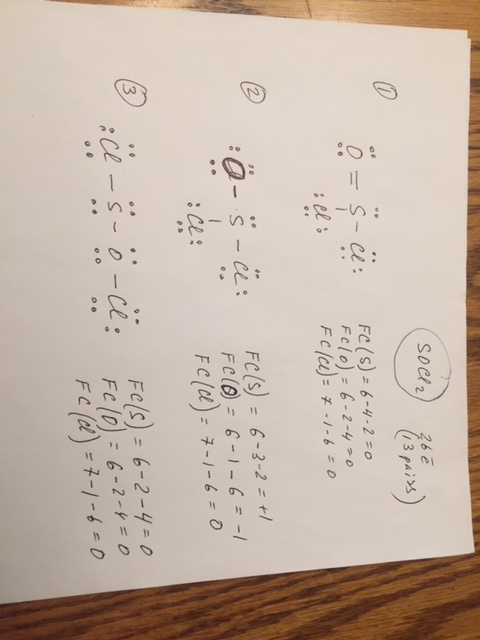 SOCl2 26ē
(13 pairs)
①
O = S - Cl
Cl
FC(S) = 6-4-2=0
FC(O) = 6-2-4=0
FC(Cl) = 7-1-6=0
②
O - S - Cl
Cl
FC(S) = 6-3-2=+1
FC(O) = 6-1-6=-1
FC(Cl) = 7-1-6=0
③
Cl - S - O - Cl
FC(S) = 6-2-4=0
FC(O) = 6-2-4=0
FC(Cl) = 7-1-6=0